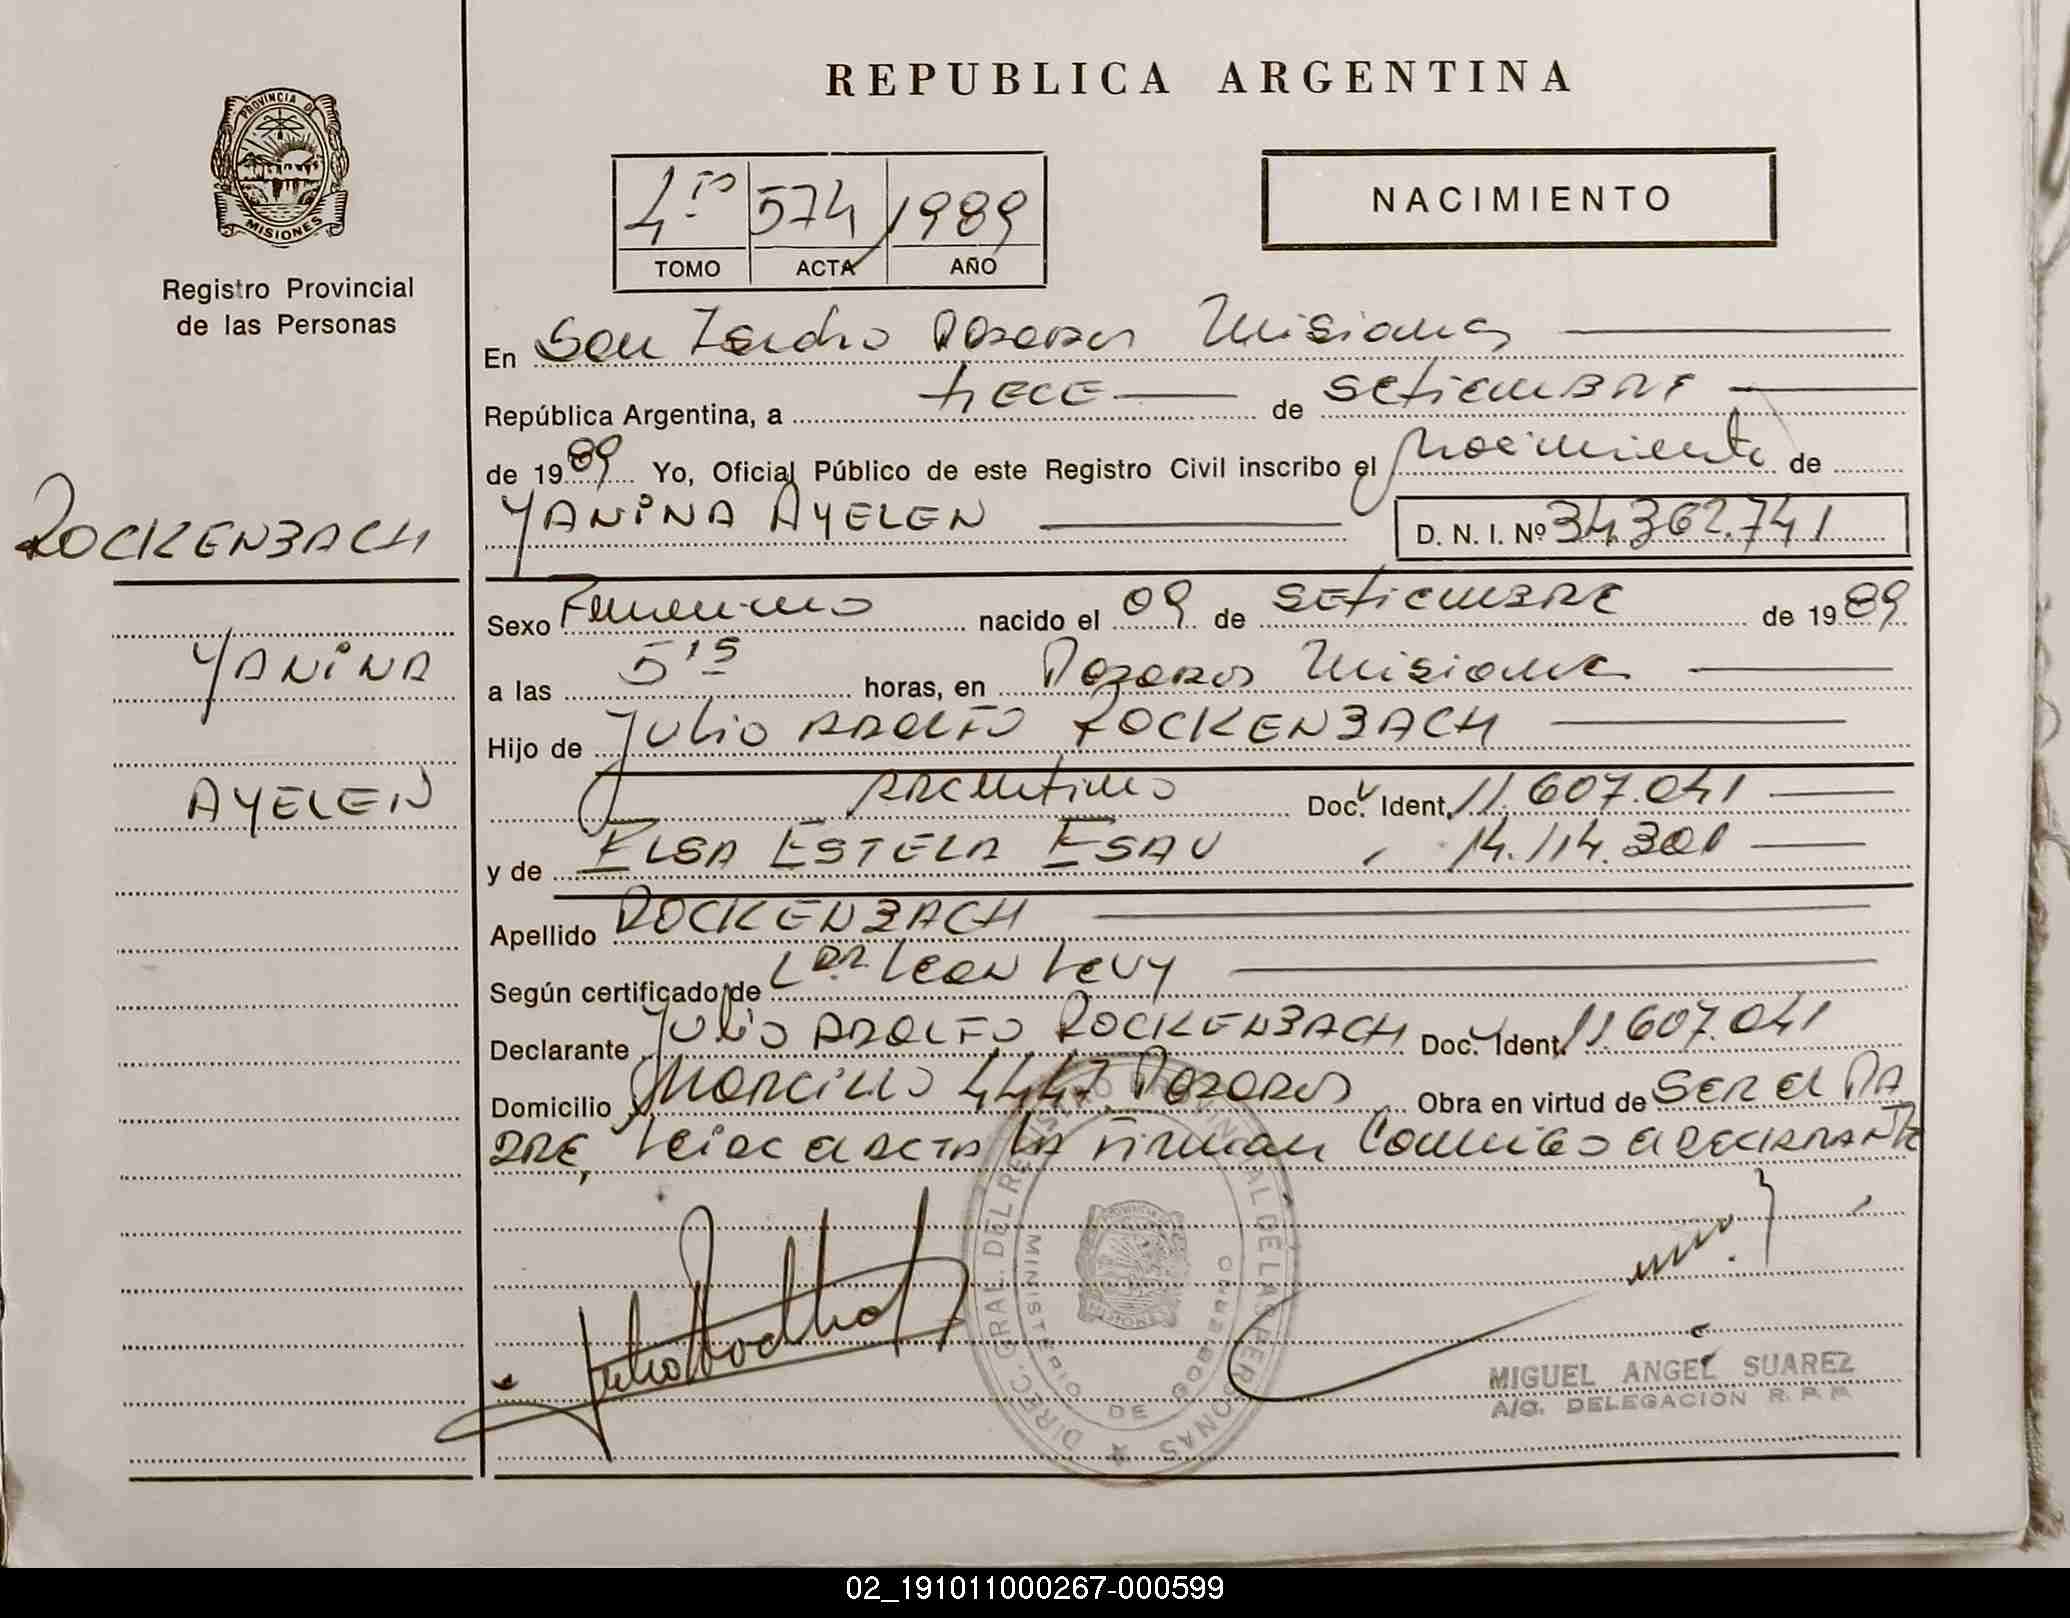 REPUBLICA ARGENTINA
PROVINCIA DE
MISIONES
Registro Provincial
de las Personas
4to 574 1989
TOMO ACTA AÑO
NACIMIENTO
En San Isidro Posadas Misiones
República Argentina, a trece de setiembre
de 1989 Yo, Oficial Público de este Registro Civil inscribo el nacimiento de
YANINA AYELEN D. N. I. Nº 34.362.741
ROCKENBACH
YANINA
AYELEN
Sexo Femenino nacido el 09 de SETIEMBRE de 1989
a las 5 15 horas, en Posadas Misiones
Hijo de Julio ADOLFO ROCKENBACH
Argentino Doc. Ident. 11.607.041
y de ELSA ESTELA ESAU 14.114.301
Apellido ROCKENBACH
Según certificado de Dr. Leon Levy
Declarante Julio ADOLFO ROCKENBACH Doc. Ident. 11.607.041
Domicilio 4447 Posadas Obra en virtud de SER el PA
DRE, Leida el acta la firman Conmigo el declarante
DIREC. GRAL. DEL REGISTRO PROVINCIAL DE LAS PERSONAS
MINISTERIO DE GOBIERNO
MIGUEL ANGEL SUAREZ
A/C. DELEGACION R. P. P.
02_191011000267-000599